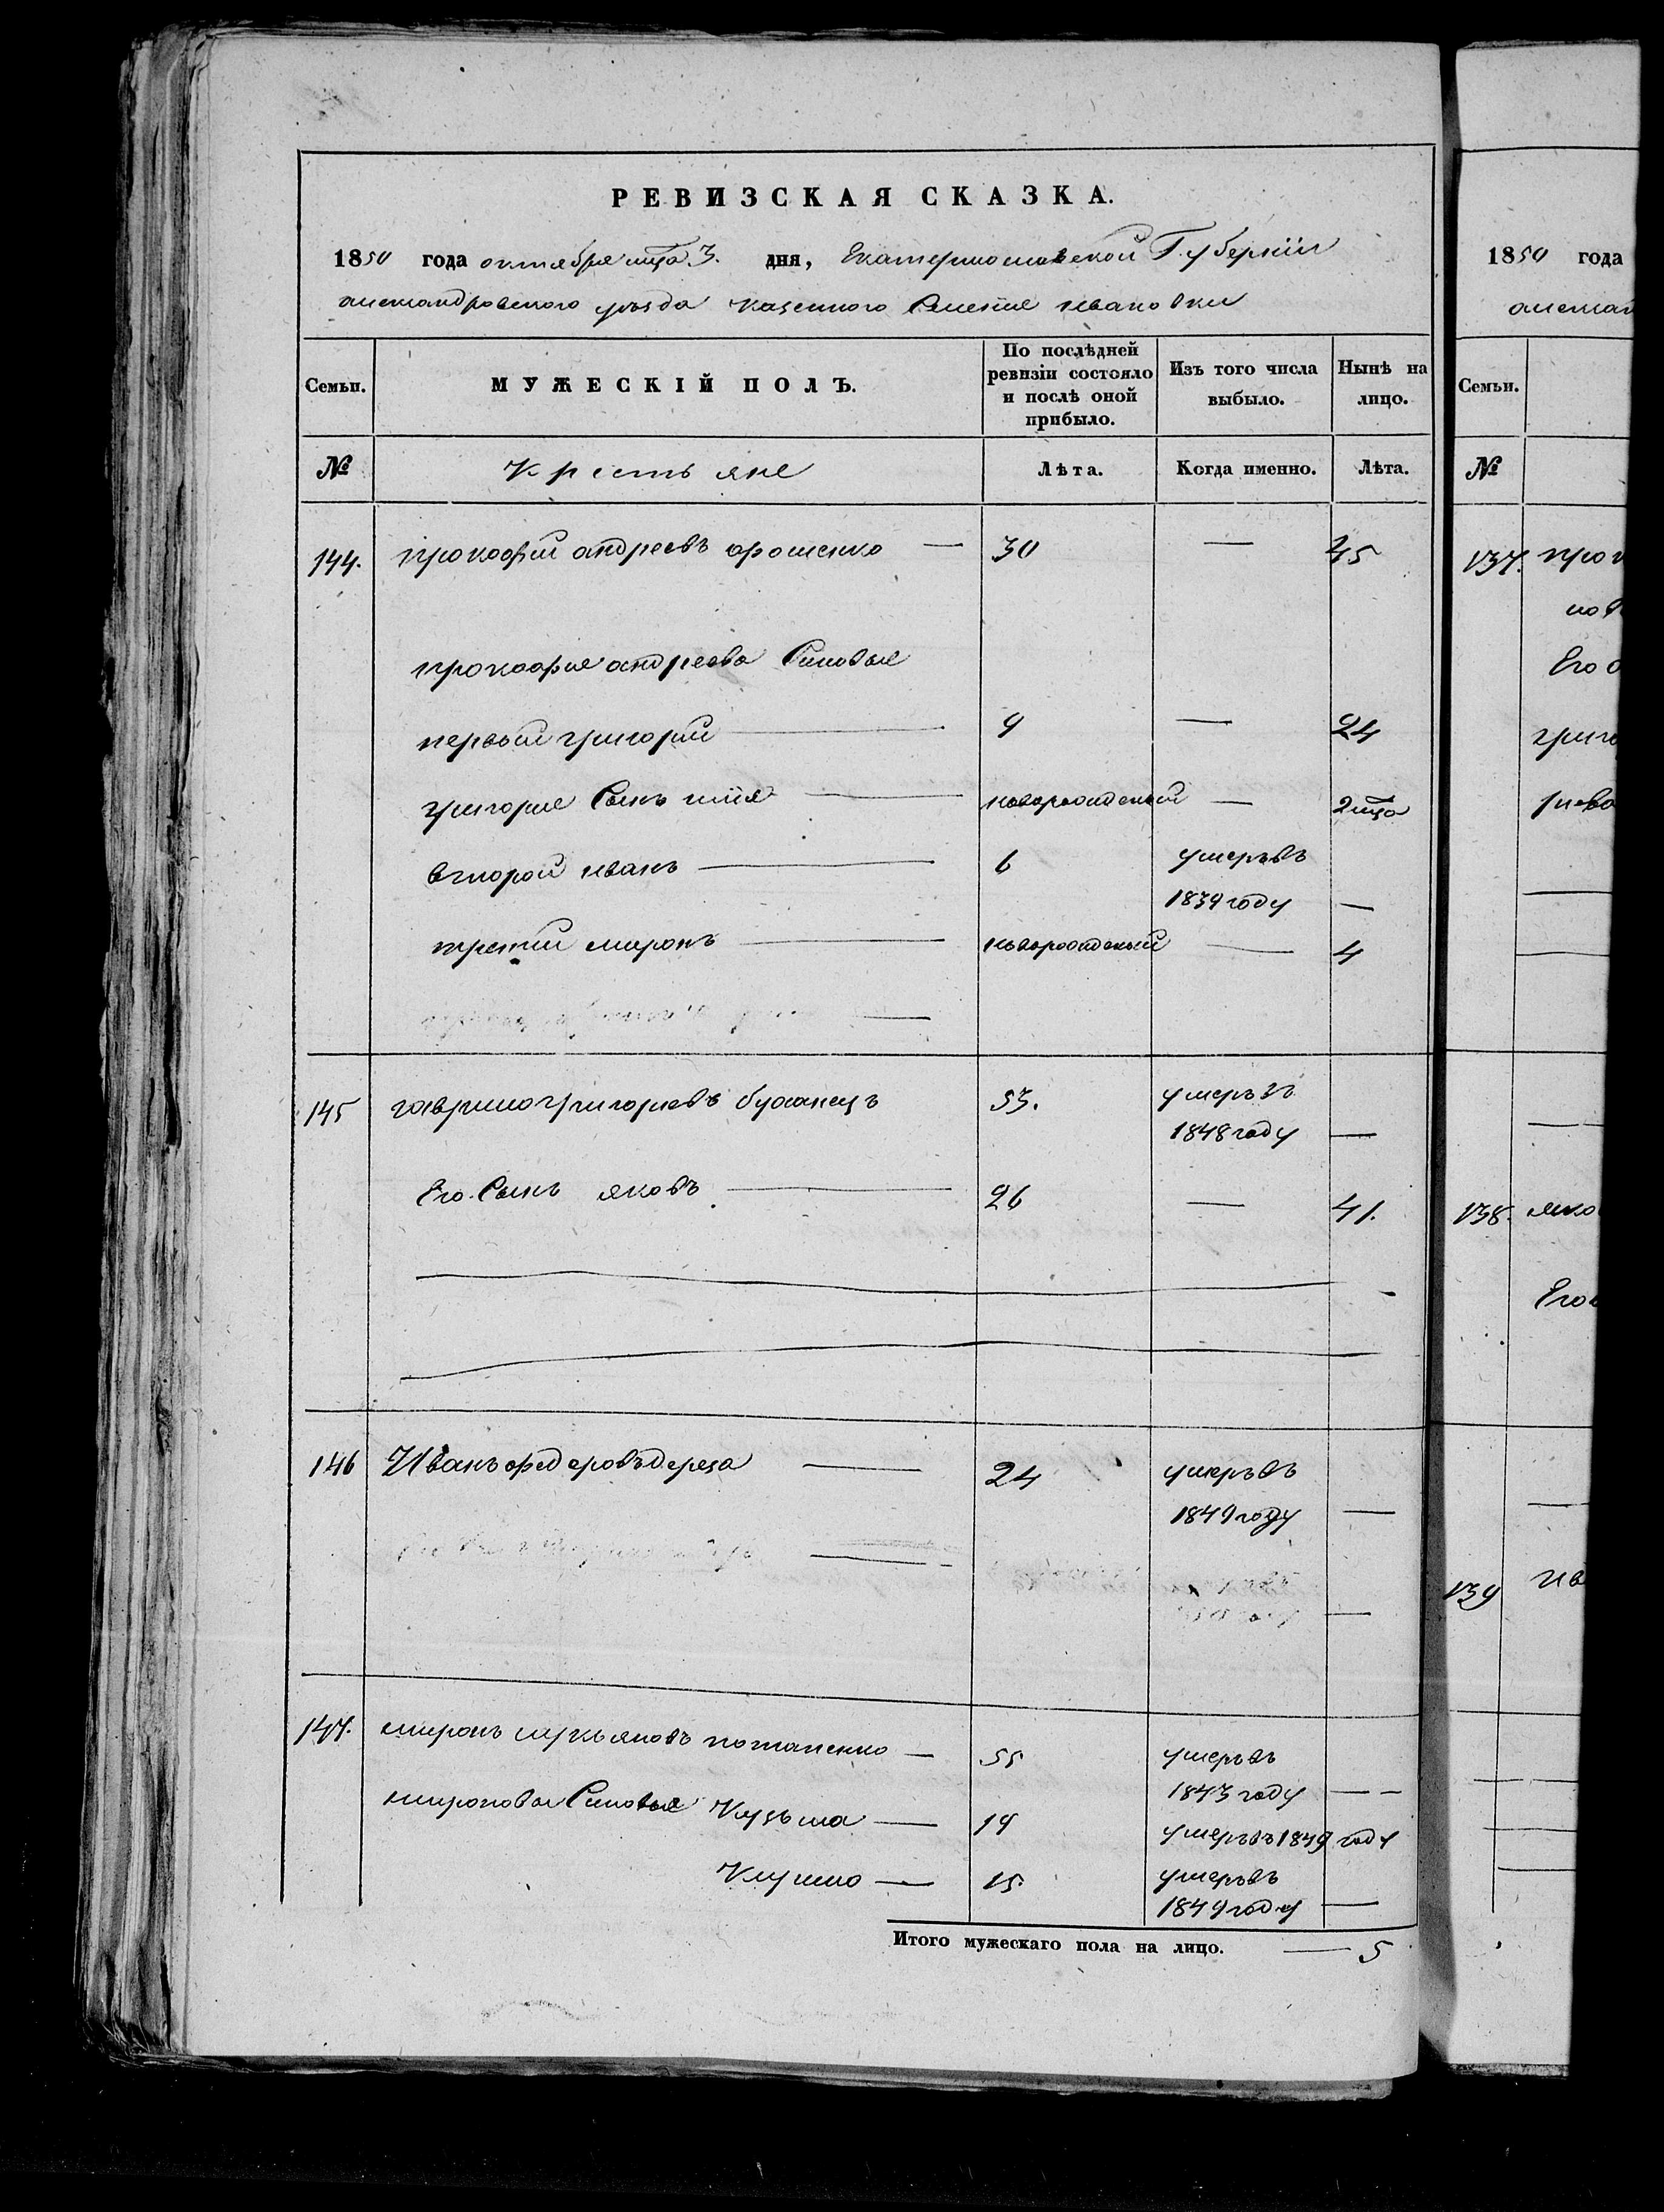 РЕВИЗСКАЯ СКАЗКА.
1850 года октября мца 3. дня, Екатеринославской Губернiи
александровского уезда казенного Селенiе ивановки
Семьи. МУЖЕСКІЙ ПОЛЪ. По послѣдней ревизіи состояло и послѣ оной прибыло. Изъ того числа выбыло. Нынѣ на лицо.
№ Крестьяне Лѣта. Когда именно. Лѣта.
144. прокофий андреевъ ярошенко — 30 — 45
прокофия андреева Синовья
первый григорий 9 — 24
григория Сынъ илiя новорожденый — 2 мца
второй иванъ 6 умеръ въ
1839 году —
третий миронъ новорожденый — 4
145 гаврило григориевъ бужанецъ 53. умеръ въ
1848 году —
Его Сынъ яковъ 26 — 41.
146 Иванъ федеровъ дереза 24 умеръ въ
1849 году —
147. миронъ лукьяновъ потапенко — 55 умеръ въ
1843 году —
мироновы Синовья Кузьма — 19 умеръ въ 1849 году
15. умеръ въ
1849 году —
Итого мужескаго пола на лицо. — 5
1850 года
Семьи.
№
137.
Его
138.
139